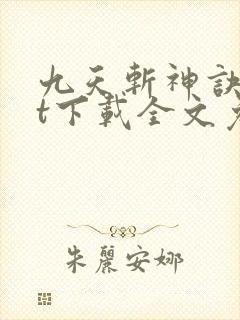 九天斬神訣
t下載全文
朱麗安娜